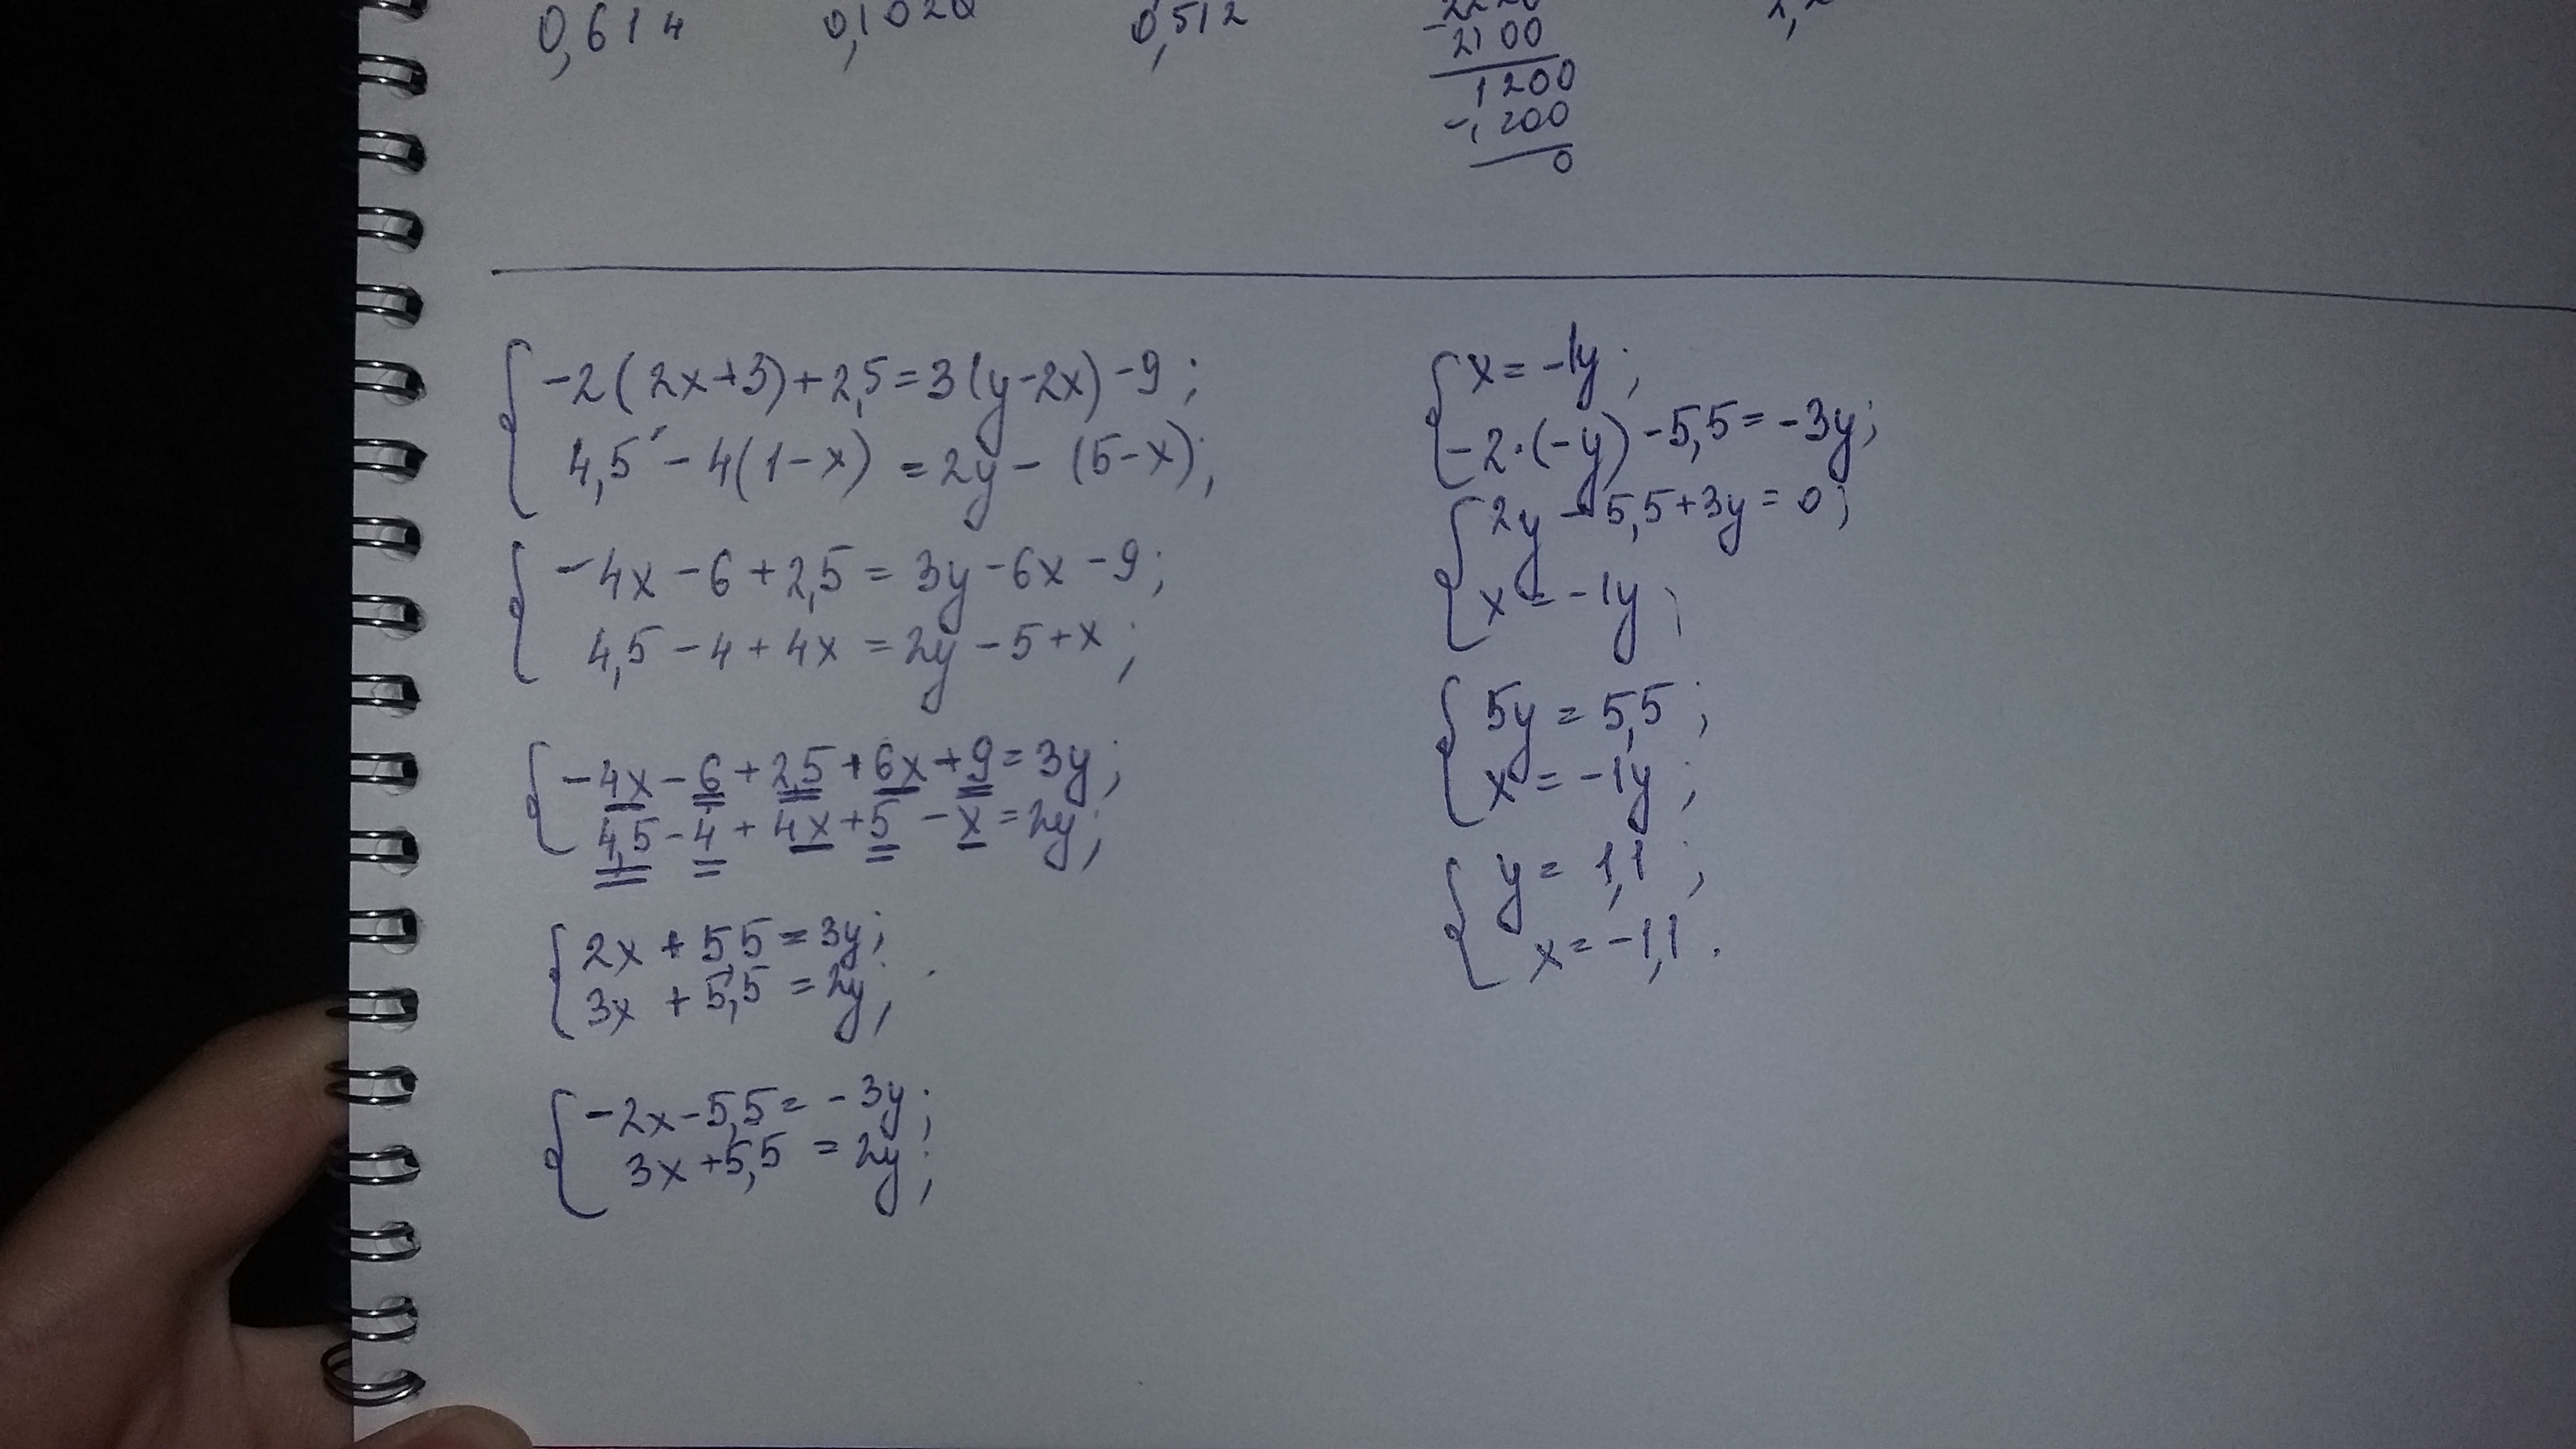 0,614
0,512
2100
1200
-1200
0
-2(2x+3)+2,5=3(y-2x)-9;
4,5-4(1-x)=2y-(5-x);
-4x-6+2,5=3y-6x-9;
4,5-4+4x=2y-5+x;
-4x-6+2,5+6x+9=3y;
4,5-4+4x+5-x=2y;
2x+5,5=3y;
3x+5,5=2y;
-2x-5,5=-3y;
3x+5,5=2y;
x=-1y;
-2·(-y)-5,5=-3y;
2y-5,5+3y=0;
x=-1y;
5y=5,5;
x=-1y;
y=1,1;
x=-1,1.